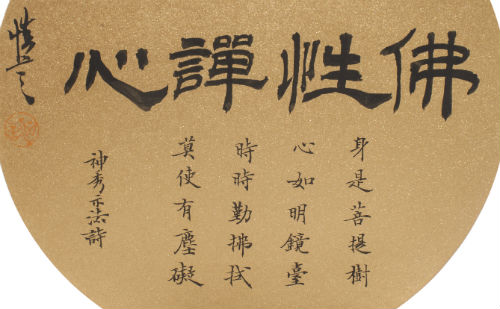 佛性譂心
身是菩提樹
心如明鏡臺
時時勤拂拭
莫使有塵礙
神秀示法詩